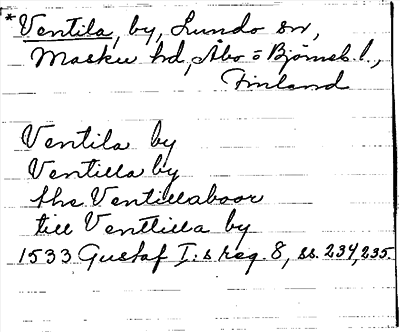 * Ventila, by, Lundo sn,
Masku hd, Åbo o Björneb. l.,
Finland
Ventila by
Ventilla by
the Ventillaboor
till Venttilla by
1533 Gustaf I:s reg. 8, ss. 234, 235.